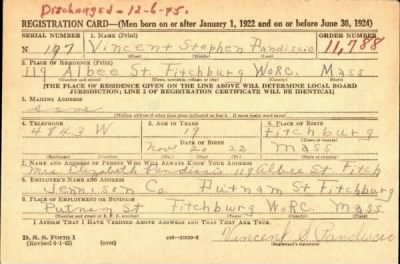 Discharged - 12-6-45.
REGISTRATION CARD—(Men born on or after January 1, 1922 and on or before June 30, 1924)
SERIAL NUMBER 1. NAME (Print) ORDER NUMBER
N 197 Vincent Stephen Pandiscio 11,788
2. PLACE OF RESIDENCE (Print)
119 Albee St. Fitchburg Worc. Mass
[THE PLACE OF RESIDENCE GIVEN ON THE LINE ABOVE WILL DETERMINE LOCAL BOARD
JURISDICTION; LINE 2 OF REGISTRATION CERTIFICATE WILL BE IDENTICAL]
3. MAILING ADDRESS
same
[Mailing address if other than place indicated on line 2. If same insert word same]
4. TELEPHONE 5. AGE IN YEARS 6. PLACE OF BIRTH
4843 W 19 Fitchburg
DATE OF BIRTH
Nov 20 22 Mass
7. NAME AND ADDRESS OF PERSON WHO WILL ALWAYS KNOW YOUR ADDRESS
Mrs Elizabeth Pandiscio 119 Albee St Fitch
8. EMPLOYER'S NAME AND ADDRESS
Jennison Co. Putnam St Fitchburg
9. PLACE OF EMPLOYMENT OR BUSINESS
Putnam St Fitchburg Worc. Mass.
I AFFIRM THAT I HAVE VERIFIED ABOVE ANSWERS AND THAT THEY ARE TRUE.
D. S. S. Form 1
(Revised 6-1-42) (over) Vincent S Pandiscio
(Registrant's signature)